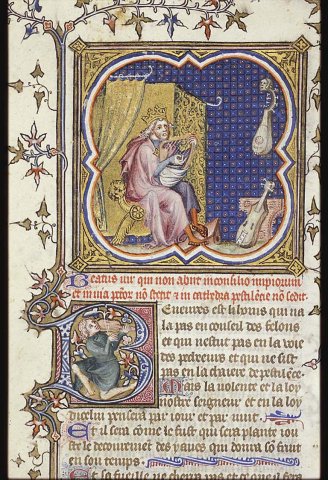 Beatus uir qui non abiit in consilio impiorum
et in uia pctor̄ nō stetit & in cathedra pestilēcie nō sedit.
Beneures est li hons qui na
la pas en conseil des felons
et qui nestut pas en la uoie
des pecheurs et qui ne sist
pas en la chaiere de pestilēce.
Mais la uolente et la loy
nostre seigneur et en la loy
dicelui pensera par iour et par nuit
Et il sera cōme le fust qui sera plante iou
ste le decourement des yaues qui donra sō fruit
en son temps.
Et sa fueille ne cherra pas et ce que il fera